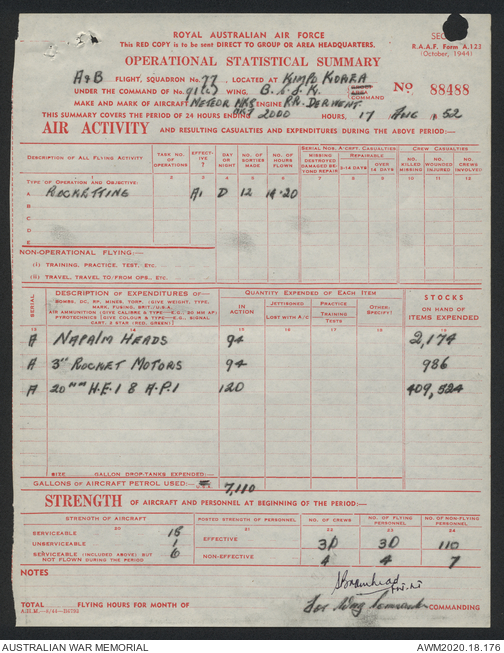 ROYAL AUSTRALIAN AIR FORCE
This RED COPY is to be sent DIRECT TO GROUP OR AREA HEADQUARTERS.
R.A.A.F. Form A.123
(October, 1944)
OPERATIONAL STATISTICAL SUMMARY
A & B FLIGHT, SQUADRON No. 77, LOCATED AT KIMPO KOREA
UNDER THE COMMAND OF No. 91(C) WING, COMMAND
No 88488
MAKE AND MARK OF AIRCRAFT METEOR MK8 ENGINE R.R. DERWENT.
THIS SUMMARY COVERS THE PERIOD OF 24 HOURS ENDING 2000 HOURS, 17 AUG 1952
AIR ACTIVITY AND RESULTING CASUALTIES AND EXPENDITURES DURING THE ABOVE PERIOD:—
DESCRIPTION OF ALL FLYING ACTIVITY
TASK NO. OF OPERATIONS
EFFECTIVE ?
DAY OR NIGHT
NO. OF SORTIES MADE
NO. OF HOURS FLOWN
SERIAL NOS. A'CRFT. CASUALTIES
MISSING DESTROYED DAMAGED BEYOND REPAIR
REPAIRABLE
0-14 DAYS
OVER 14 DAYS
CREW CASUALTIES
NO. KILLED MISSING
NO. WOUNDED INJURED
NO. CREWS INVOLVED
1 2 3 4 5 6 7 8 9 10 11 12
TYPE OF OPERATION AND OBJECTIVE
A ROCKETTING A1 D 12 14·20
B
C
D
E
NON-OPERATIONAL FLYING:—
(I) TRAINING, PRACTICE, TEST, ETC.
(II) TRAVEL, TRAVEL TO/FROM OPS., ETC.
SERIAL
DESCRIPTION OF EXPENDITURES OF—
QUANTITY EXPENDED OF EACH ITEM
STOCKS
ON HAND OF ITEMS EXPENDED
IN ACTION
JETTISONED
LOST WITH A/C
PRACTICE
TRAINING TESTS
OTHER. SPECIFY!
13 14 15 16 17 18 19
A NAPALM HEADS 94 2,174
A 3" ROCKET MOTORS 94 986
A 20MM H.E.I & A.P.I 120 409,524
SIZE GALLON DROP-TANKS EXPENDED:—
GALLONS OF AIRCRAFT PETROL USED:— 7,110
STRENGTH OF AIRCRAFT AND PERSONNEL AT BEGINNING OF THE PERIOD:—
STRENGTH OF AIRCRAFT
POSTED STRENGTH OF PERSONNEL
NO. OF CREWS
NO. OF FLYING PERSONNEL
NO. OF NON-FLYING PERSONNEL
20 21 22 23 24
SERVICEABLE 15
UNSERVICEABLE 1
SERVICEABLE (INCLUDED ABOVE) BUT NOT FLOWN DURING THE PERIOD 6
EFFECTIVE 30 30 110
NON-EFFECTIVE 4 4 7
NOTES
For Wing Commander COMMANDING
TOTAL FLYING HOURS FOR MONTH OF
AUSTRALIAN WAR MEMORIAL
AWM2020.18.176